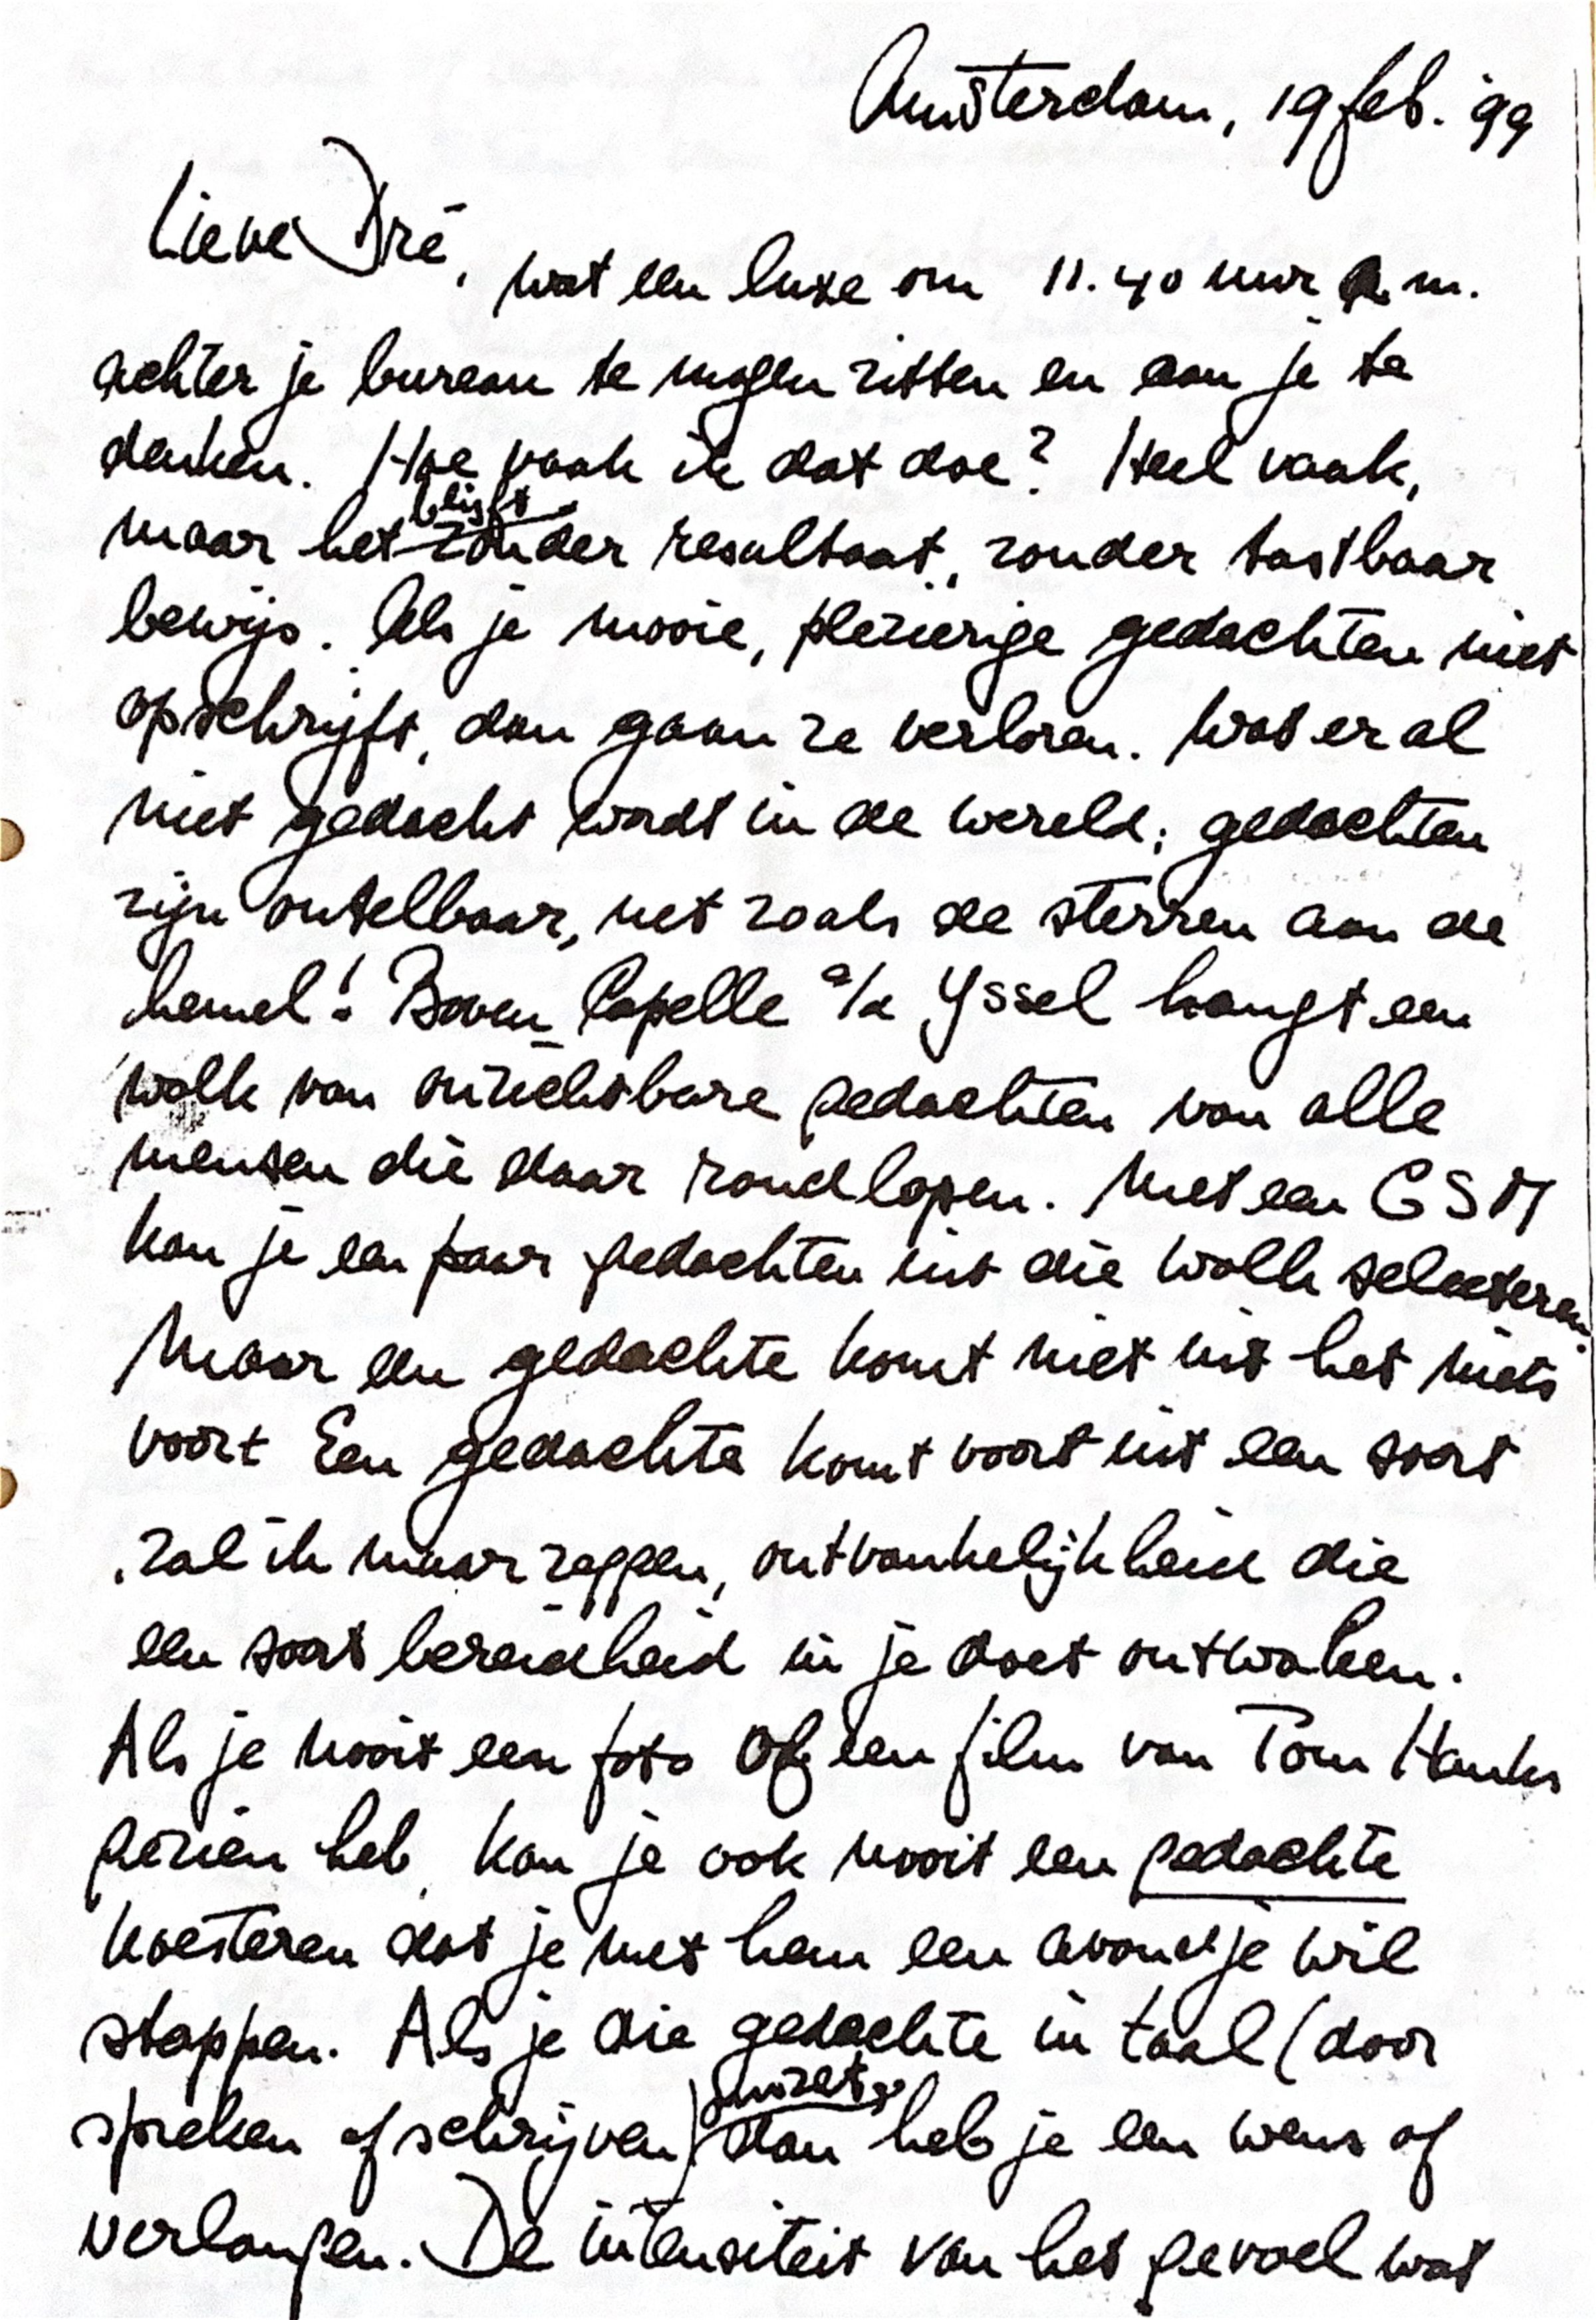 Amsterdam, 19 feb. '99
Lieve Dré,
wat een luxe om 11.40 uur a.m.
achter je bureau te mogen zitten en aan je te
denken. Hoe vaak ik dat doe? Heel vaak,
maar het blijft zonder resultaat, zonder tastbaar
bewijs. Als je mooie, plezierige gedachten niet
opschrijft, dan gaan ze verloren. Wat er al
niet gedacht wordt in de wereld; gedachten
zijn ontelbaar, net zoals de sterren aan de
hemel! Boven Capelle a/d Yssel hangt een
wolk van onzichtbare gedachten van alle
mensen die daar rondlopen. Met een GSM
kan je een paar gedachten uit die wolk selecteren.
Maar een gedachte komt niet uit het niets
voort Een gedachte komt voort uit een soort
, zal ik maar zeggen, ontvankelijkheid die
een soort bereidheid in je doet ontwaken.
Als je nooit een foto of een film van Tom Hanks
gezien heb, kan je ook nooit een gedachte
koesteren dat je met hem een avondje wil
stappen. Als je die gedachte in taal (door
spreken of schrijven) omzet, dan heb je een wens of
verlangen. De intensiteit van het gevoel wat